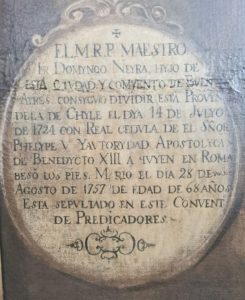 EL M.R.P. MAESTRO
Fr. DOMYNGO NEYRA, HYJO DE
ESTA CIUDAD Y CONVENTO DE BUEN
AYRES. CONSYGUIO DIVIDIR ESTA PROVEN
DE LA DE CHILE EL DYA 14 DE JULYO
DE 1724 CON REAL CEDULA DE EL SÑOR
PHELYPE V. Y AVTORYDAD APOSTOLYCA
DE BENEDYCTO XIII A QUYEN EN ROMA
BESÓ LOS PIES. MURIO EL DIA 28 DE
AGOSTO DE 1757 DE EDAD DE 68 AÑOS.
ESTA SEPULTADO EN ESTE CONVENT
DE PREDICADORES